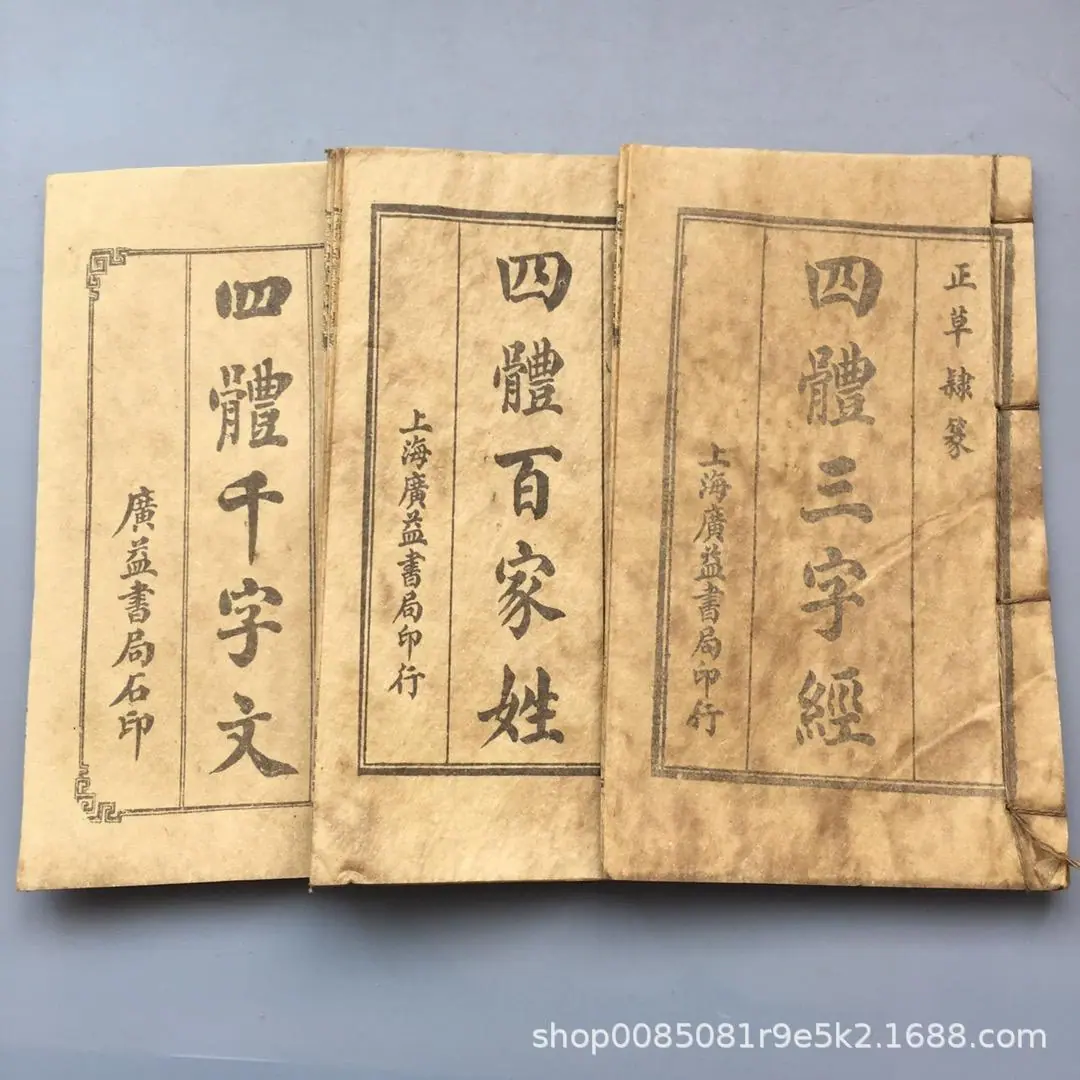 正草隸篆
四體三字經
上海廣益書局印行
四體百家姓
上海廣益書局印行
四體千字文
廣益書局石印
shop0085081r9e5k2.1688.com